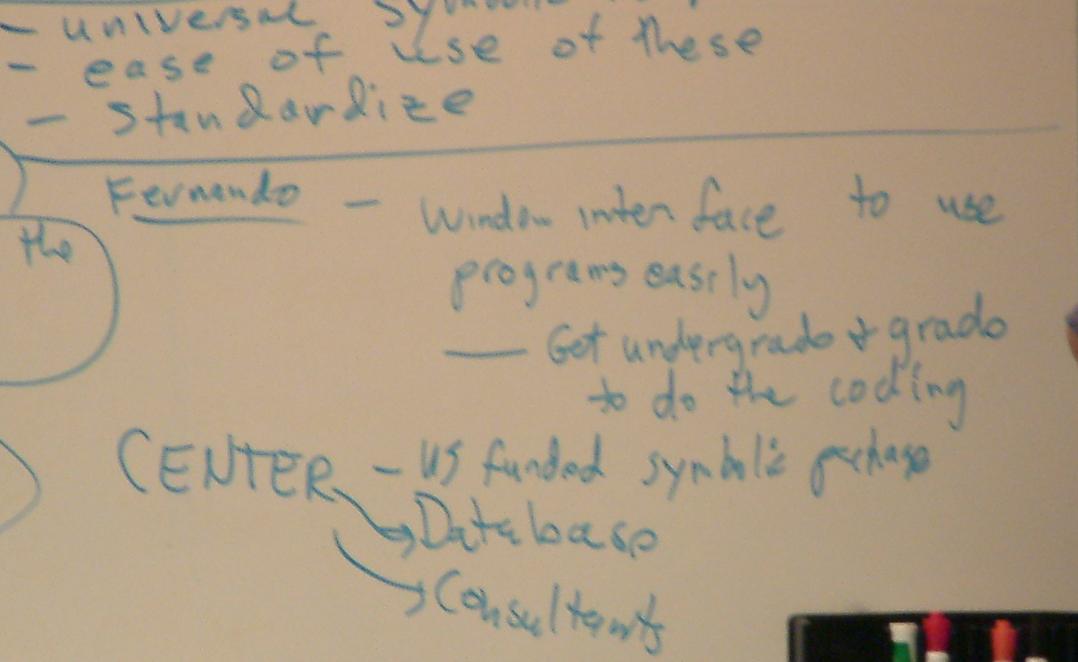 - universal
- ease of use of these
- standardize
the
Fernando - Window interface to use
programs easily
— Get undergrads & grads
to do the coding
CENTER - US funded symbolic package
Database
Consultants